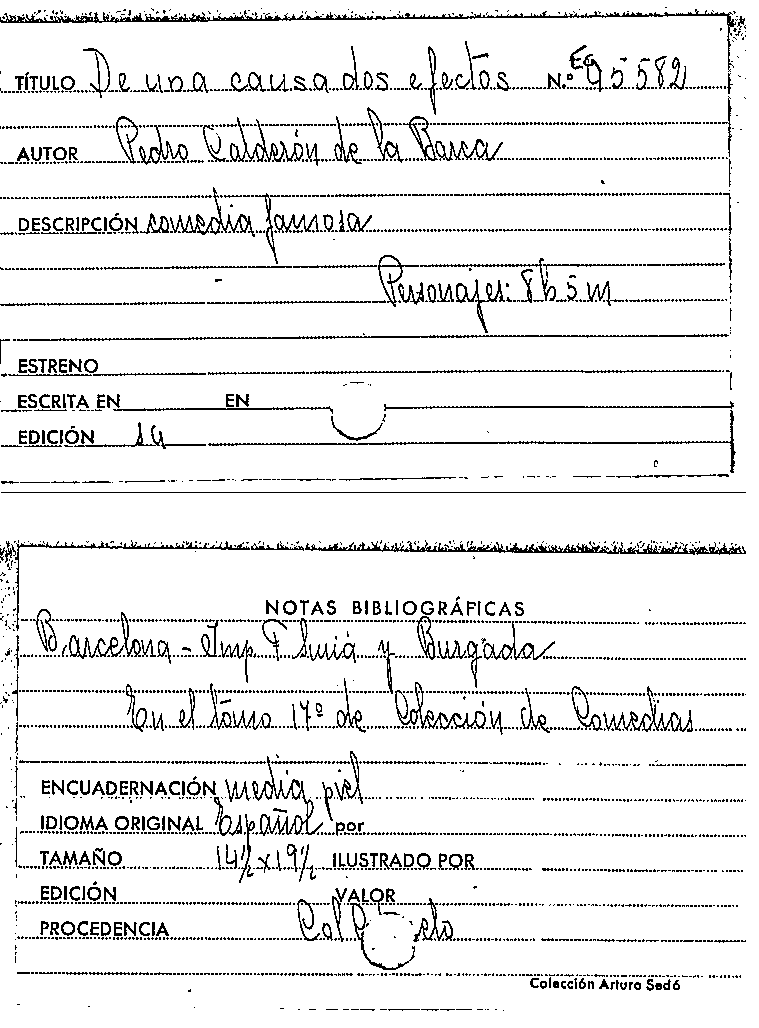 TÍTULO De una causa dos efectos N.º 45582
AUTOR Pedro Calderón de la Barca
DESCRIPCIÓN comedia famosa
Personajes: 8h 5m
ESTRENO
ESCRITA EN EN
EDICIÓN
NOTAS BIBLIOGRÁFICAS
Barcelona - Imp F Suriá y Burgada
En el tomo 17º de Colección de Comedias
ENCUADERNACIÓN media piel
IDIOMA ORIGINAL Español por
TAMAÑO 14½ x 19½ ILUSTRADO POR
EDICIÓN VALOR
PROCEDENCIA Col
Colección Arturo Sedó